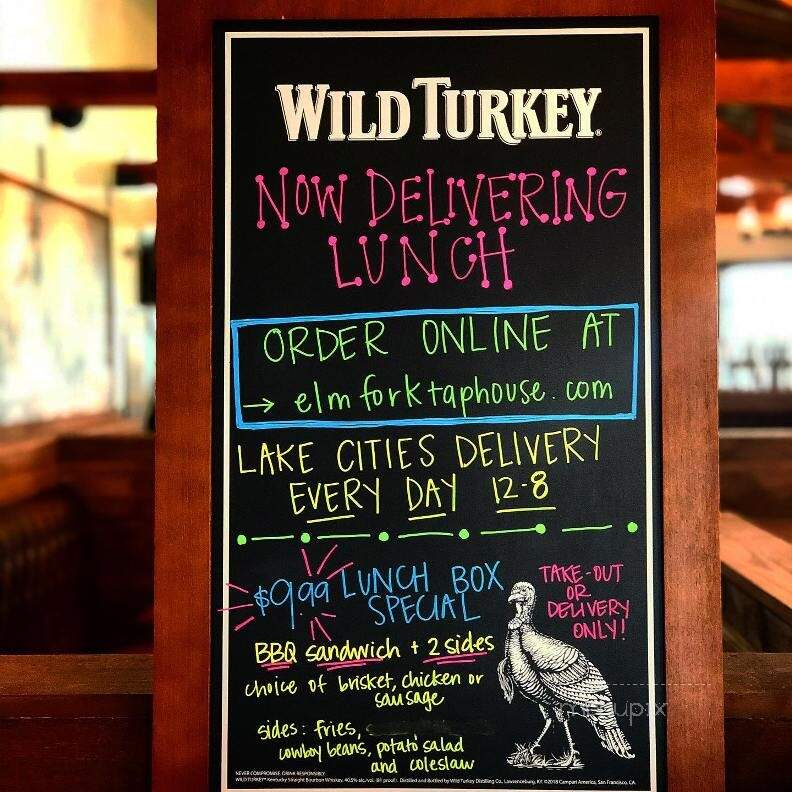 WILD TURKEY.
NOW DELIVERING
LUNCH
ORDER ONLINE AT
→ elmforktaphouse.com
LAKE CITIES DELIVERY
EVERY DAY 12-8
$9.99 LUNCH BOX
SPECIAL
TAKE-OUT
OR
DELIVERY
ONLY!
BBQ sandwich + 2 sides
choice of brisket, chicken or
sausage
sides: fries,
cowboy beans, potato salad
and coleslaw
NEVER COMPROMISE. DRINK RESPONSIBLY.
WILD TURKEY® Kentucky Straight Bourbon Whiskey, 40.5% alc./vol. (81 proof). Distilled and Bottled by Wild Turkey Distilling Co., Lawrenceburg, KY. ©2018 Campari America, San Francisco, CA.